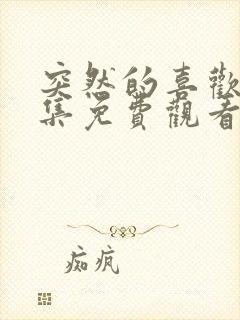 突然的喜歡
集免費觀看
痴瘋